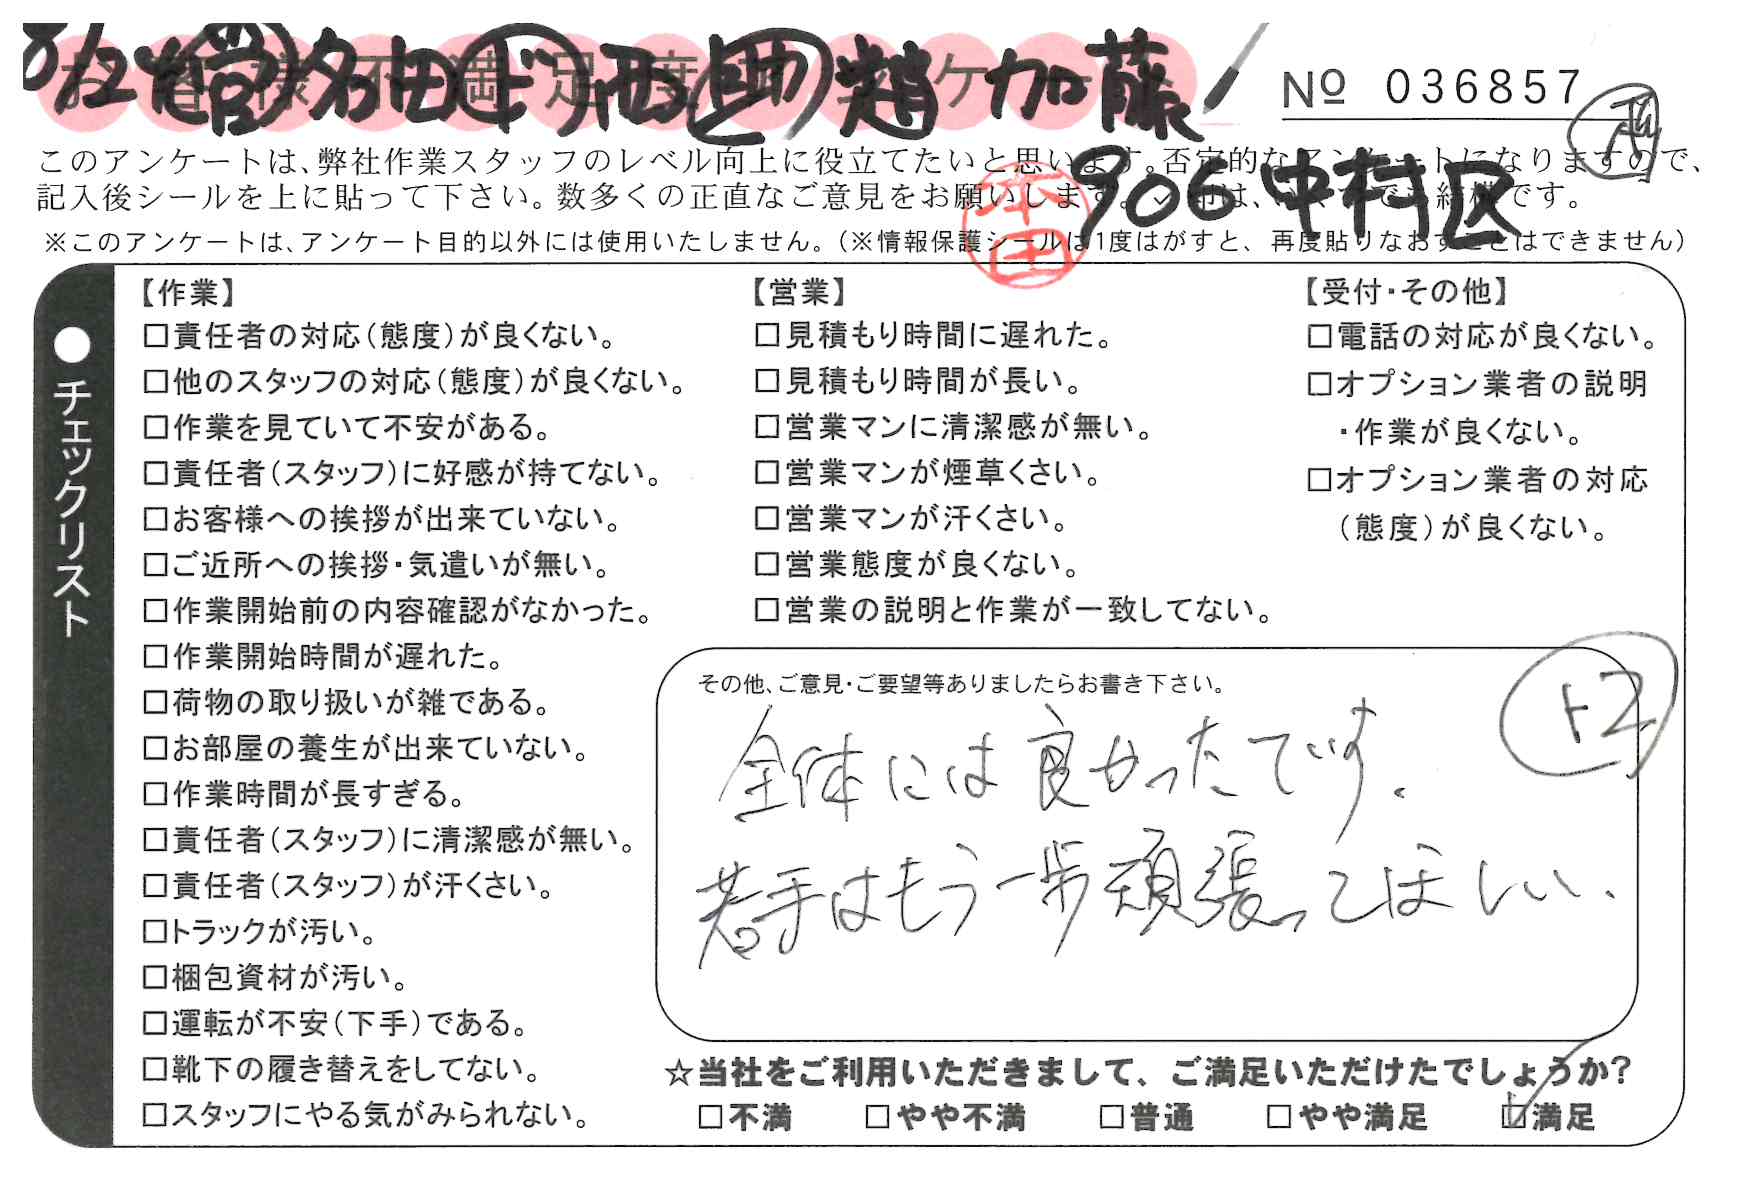 8/24 営 名田 ド 西 助 趙 加藤
お客様不満足度アンケート
№ 036857
このアンケートは、弊社作業スタッフのレベル向上に役立てたいと思います。否定的なアンケートになりますので、
記入後シールを上に貼って下さい。数多くの正直なご意見をお願いします。
906 中村区
本田
※このアンケートは、アンケート目的以外には使用いたしません。(※情報保護シールは1度はがすと、再度貼りなおすことはできません)
●チェックリスト
【作業】
□責任者の対応(態度)が良くない。
□他のスタッフの対応(態度)が良くない。
□作業を見ていて不安がある。
□責任者(スタッフ)に好感が持てない。
□お客様への挨拶が出来ていない。
□ご近所への挨拶・気遣いが無い。
□作業開始前の内容確認がなかった。
□作業開始時間が遅れた。
□荷物の取り扱いが雑である。
□お部屋の養生が出来ていない。
□作業時間が長すぎる。
□責任者(スタッフ)に清潔感が無い。
□責任者(スタッフ)が汗くさい。
□トラックが汚い。
□梱包資材が汚い。
□運転が不安(下手)である。
□靴下の履き替えをしてない。
□スタッフにやる気がみられない。
【営業】
□見積もり時間に遅れた。
□見積もり時間が長い。
□営業マンに清潔感が無い。
□営業マンが煙草くさい。
□営業マンが汗くさい。
□営業態度が良くない。
□営業の説明と作業が一致してない。
【受付・その他】
□電話の対応が良くない。
□オプション業者の説明
・作業が良くない。
□オプション業者の対応
(態度)が良くない。
その他、ご意見・ご要望等ありましたらお書き下さい。
全体には良かったです。
若手はもう一歩頑張ってほしい。
☆当社をご利用いただきまして、ご満足いただけたでしょうか?
□不満 □やや不満 □普通 □やや満足 ☑満足